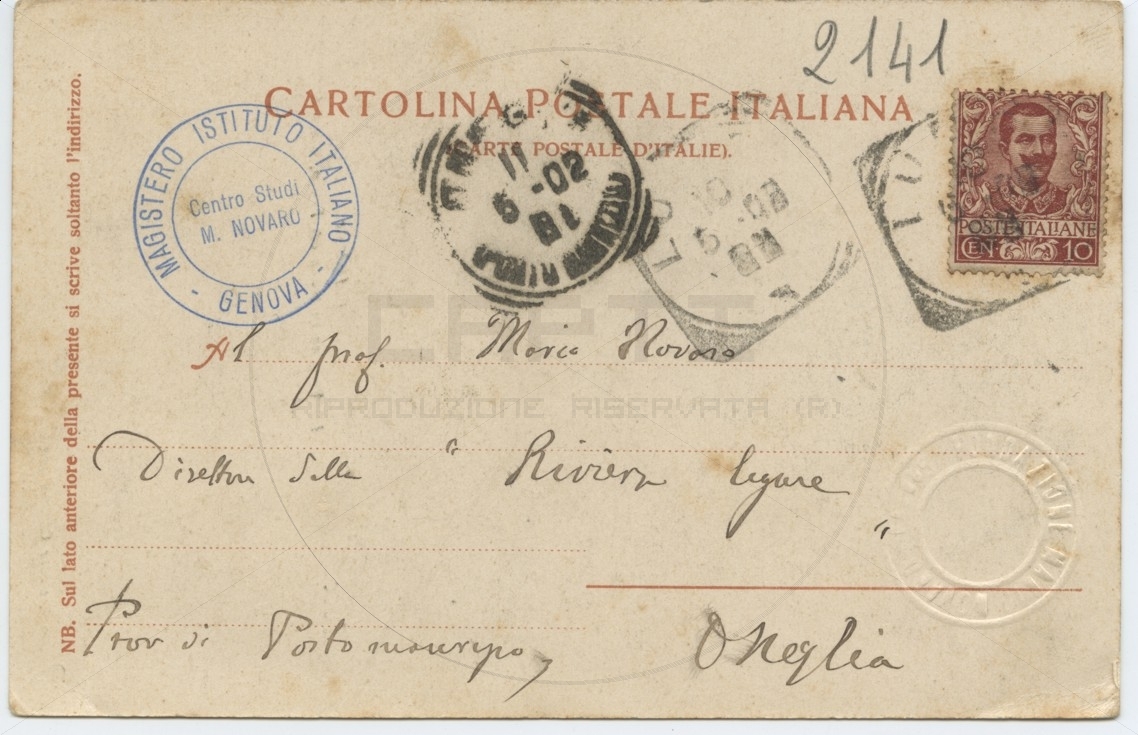 2141
CARTOLINA POSTALE ITALIANA
(CARTE POSTALE D'ITALIE).
MAGISTERO ISTITUTO ITALIANO
Centro Studi
M. NOVARO
- GENOVA -
11
5 -02
POSTE ITALIANE
CEN. 10
Al prof. Mario Novaro
RIPRODUZIONE RISERVATA (R)
Direttore della "Riviera ligure"
Prov di Portomaurizio, Oneglia
NB. Sul lato anteriore della presente si scrive soltanto l'indirizzo.